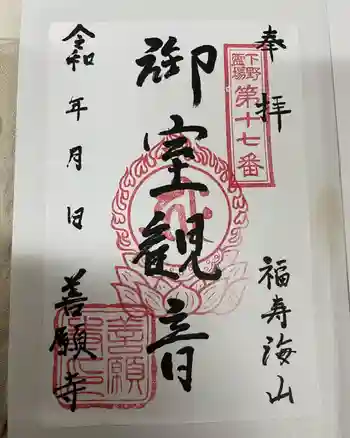 奉拝
下野霊場
第十七番
福寿海山
御室観音
令和 年 月 日
善願寺